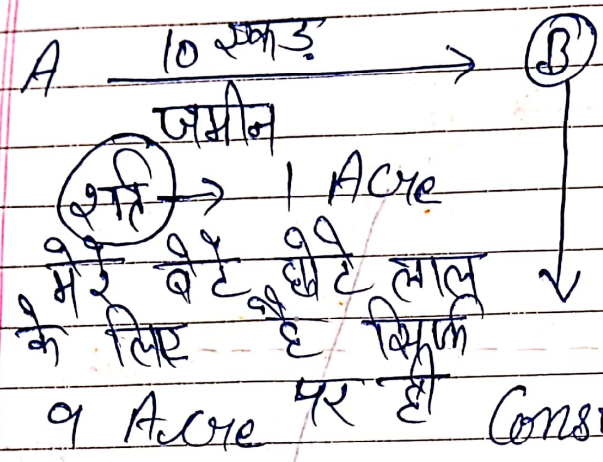 A 10 एकड़ B
जमीन
शर्त → 1 Acre
मेरे बेटे छोटे लाल
के लिए है सिर्फ
9 Acre पर ही Cons